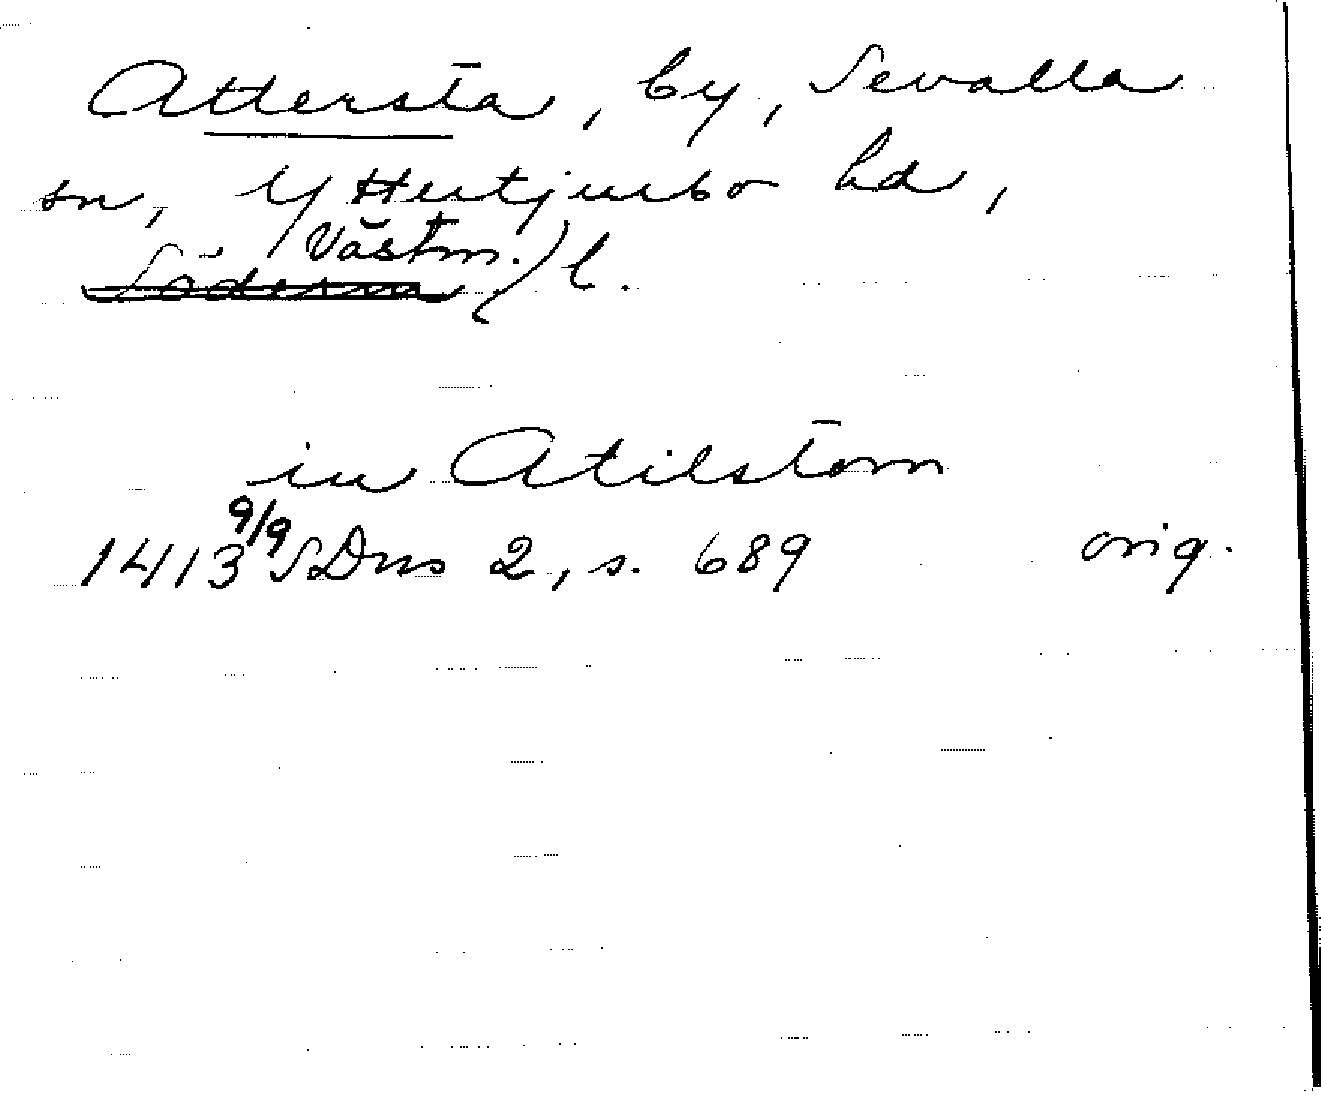 Attersta, by, Sevalla
sn, Yttertjurbo hd,
Västm. l.
Söderm
in Atilstom
1413 9/9 SDns 2, s. 689 orig.